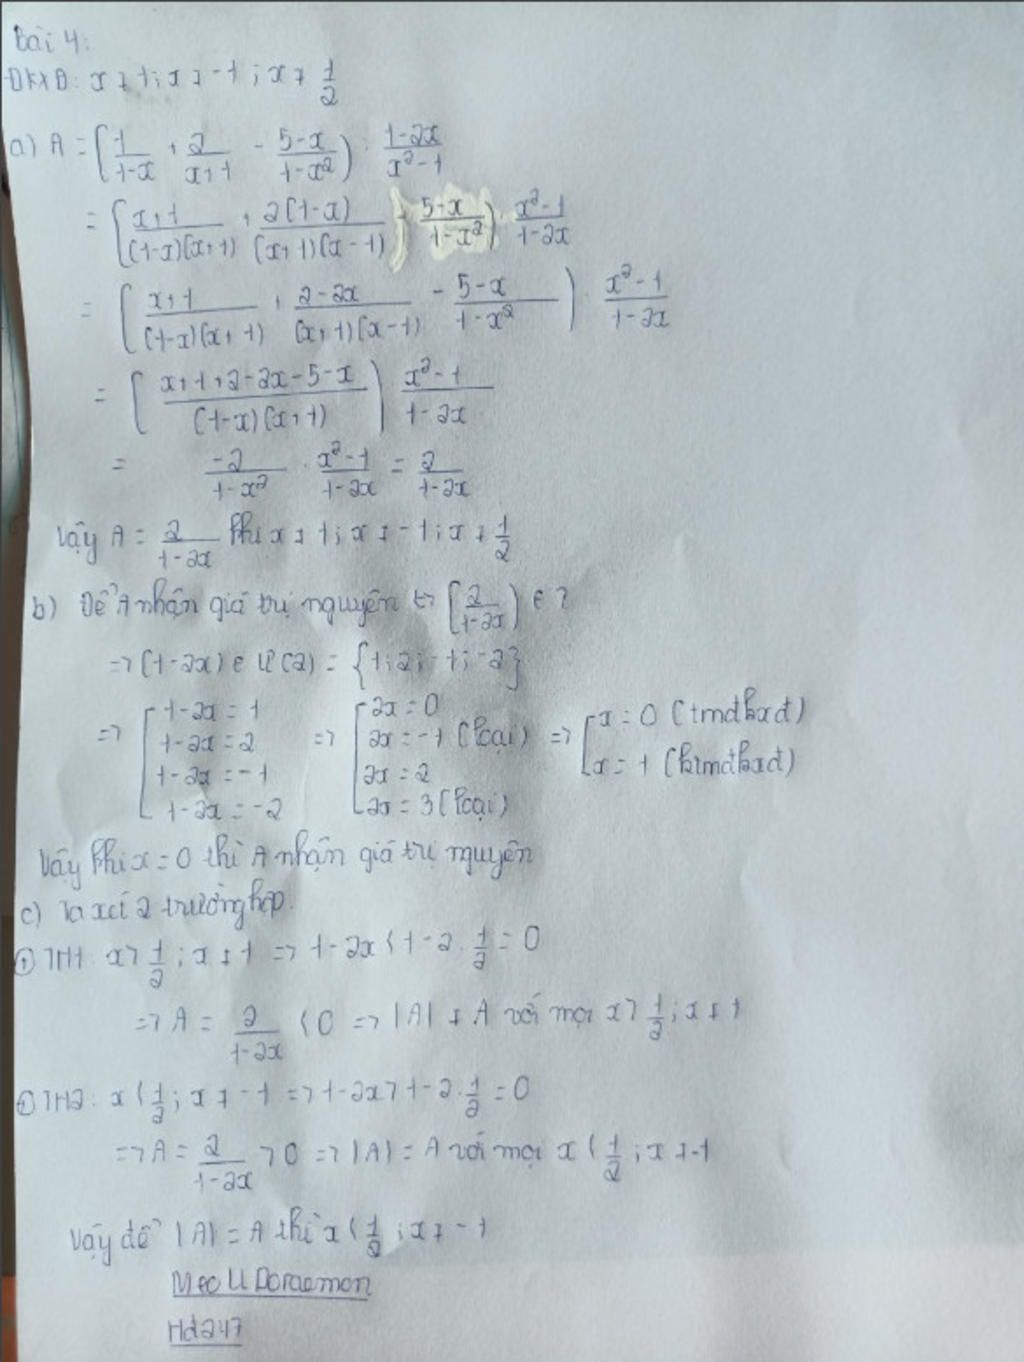 Bài 4:
ĐKXĐ: x ≠ 1; x ≠ -1; x ≠ 1/2
a) A = (1/(1-x) + 2/(x+1) - (5-x)/(1-x²)) : (1-2x)/(x²-1)
= ((x+1)/((1-x)(x+1)) + 2(1-x)/((x+1)(x-1)) - (5-x)/(1-x²)) · (x²-1)/(1-2x)
= ((x+1)/((1-x)(x+1)) + (2-2x)/((x+1)(x-1)) - (5-x)/(1-x²)) · (x²-1)/(1-2x)
= ((x+1+2-2x-5-x)/((1-x)(x+1))) · (x²-1)/(1-2x)
= -2/(1-x²) · (x²-1)/(1-2x) = 2/(1-2x)
Vậy A = 2/(1-2x) khi x ≠ 1; x ≠ -1; x ≠ 1/2
b) Để A nhận giá trị nguyên <=> (2/(1-2x)) ∈ Z
=> (1-2x) ∈ Ư(2) = {1; 2; -1; -2}
=> [ 1-2x = 1 => [ 2x = 0 => [ x = 0 (tmđkxđ)
1-2x = 2 2x = -1 (loại) x = 1 (ktmđkxđ)
1-2x = -1 2x = 2
1-2x = -2 2x = 3 (loại)
Vậy khi x = 0 thì A nhận giá trị nguyên
c) Ta xét 2 trường hợp.
① TH1: x > 1/2; x ≠ 1 => 1-2x < 1-2·1/2 = 0
=> A = 2/(1-2x) < 0 => |A| ≠ A với mọi x > 1/2; x ≠ 1
② TH2: x < 1/2; x ≠ -1 => 1-2x > 1-2·1/2 = 0
=> A = 2/(1-2x) > 0 => |A| = A với mọi x < 1/2; x ≠ -1
Vậy để |A| = A thì x < 1/2; x ≠ -1
Meo U Doraemon
Hd247